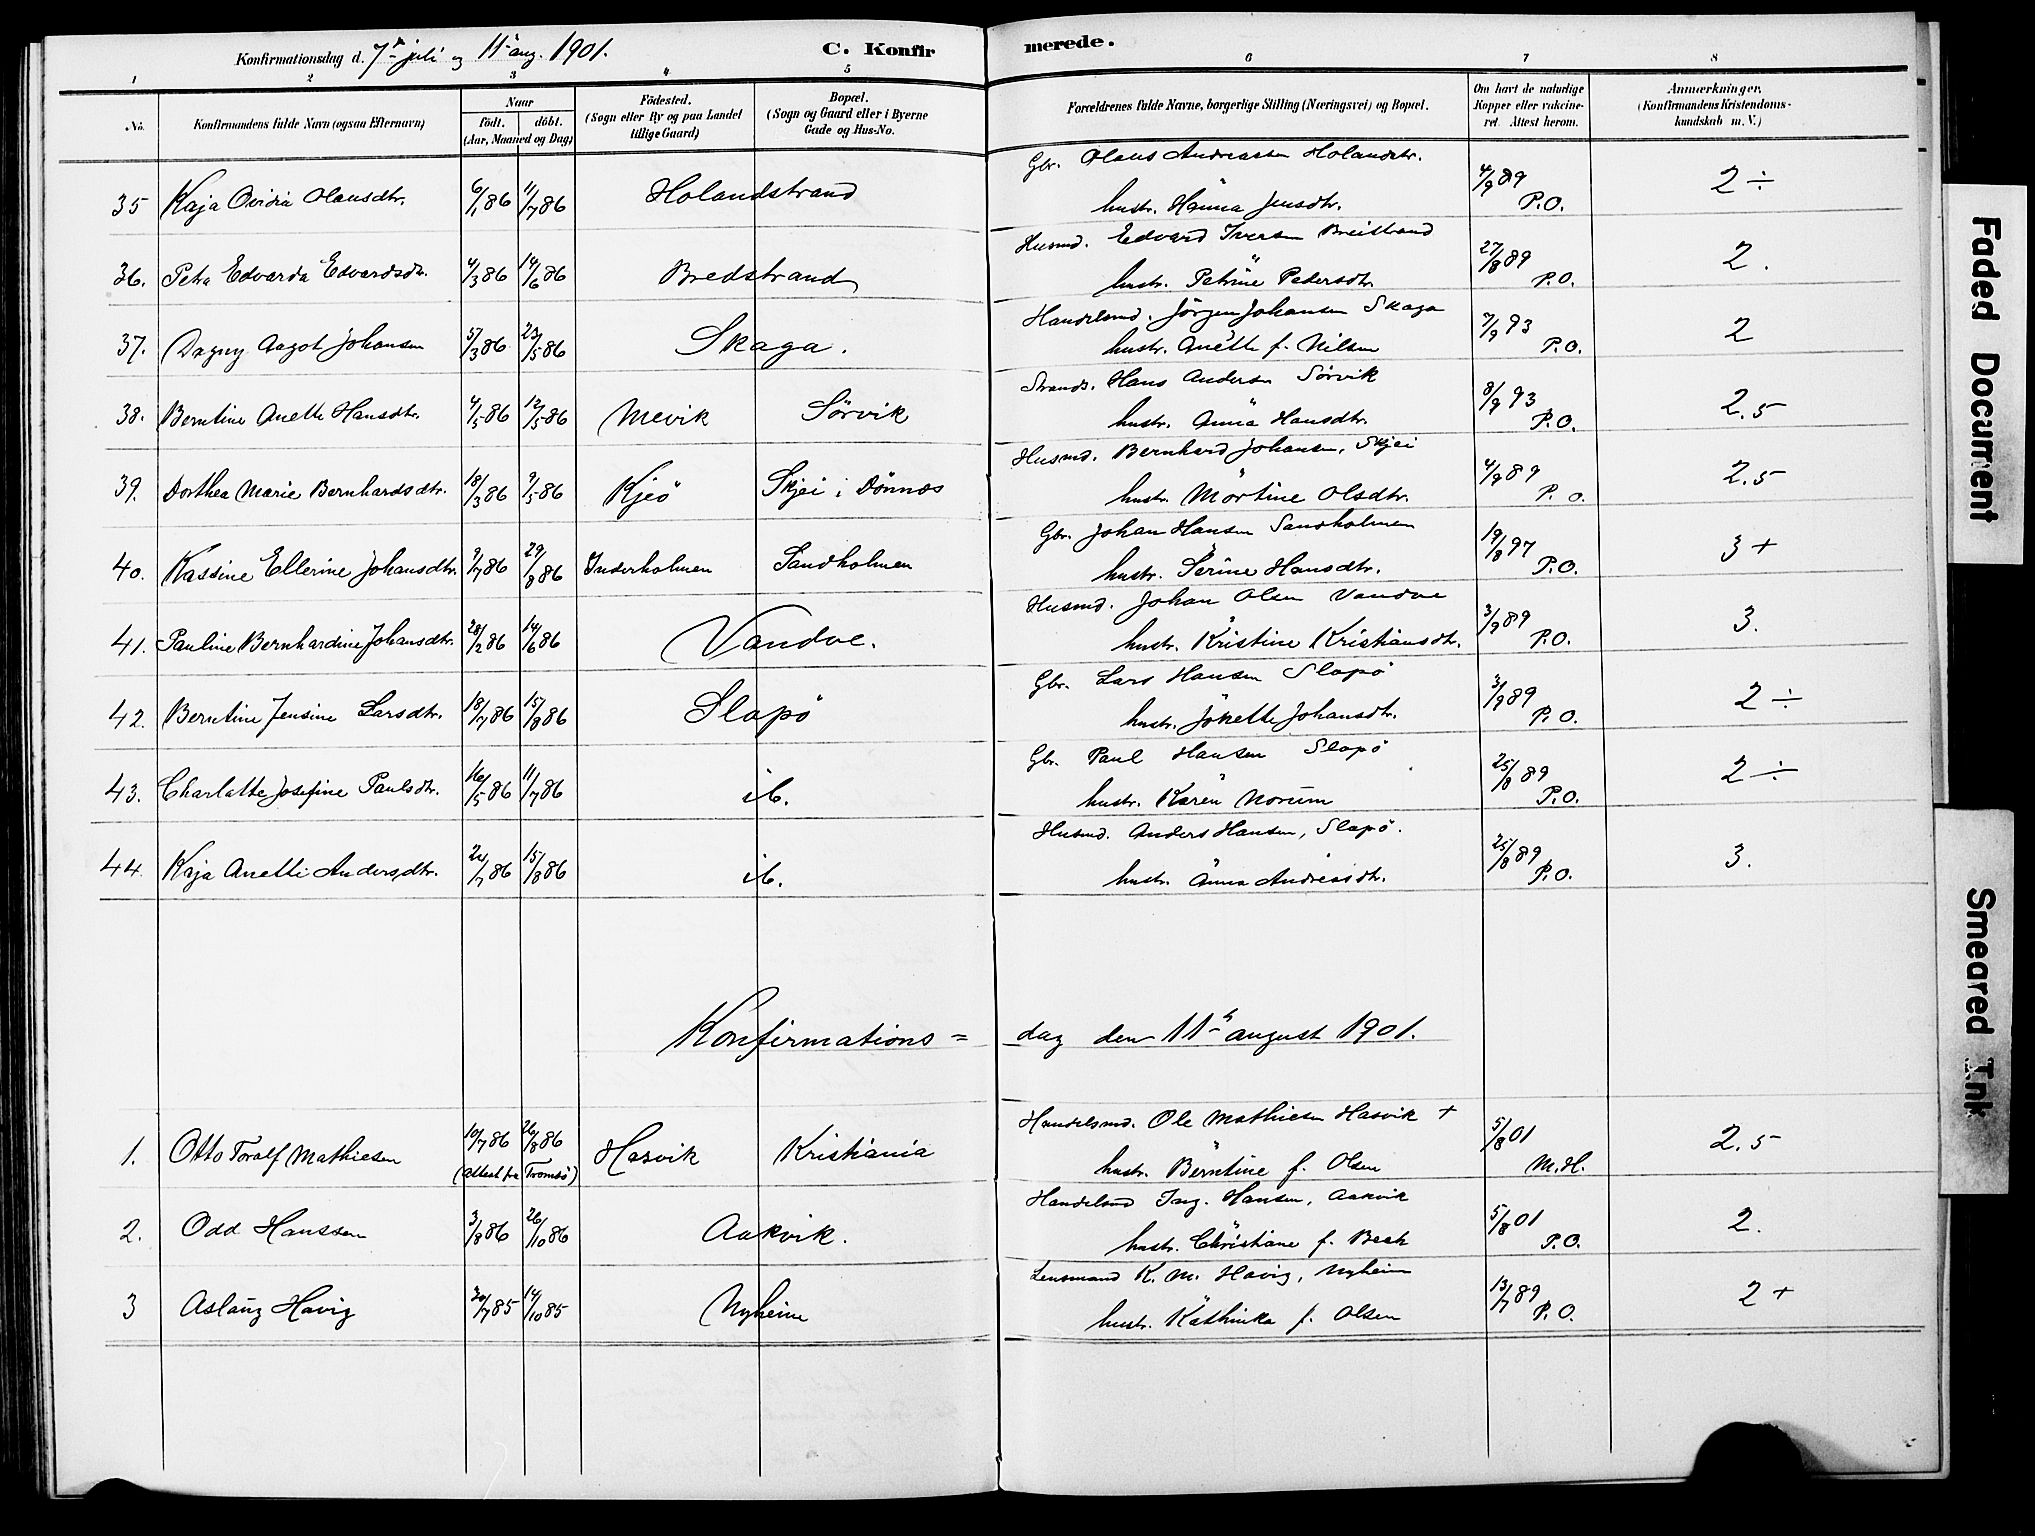 Konfirmationsdag d. 7de juli og 11te aug. 1901.
C. Konfirmerede.
1 2 3 4 5 6 7 8
No. Konfirmandens fulde Navn (ogsaa Efternavn) Naar födt. döbt. (Aar, Maaned og Dag) Födested. (Sogn eller By og paa Landet tillige Gaard) Bopæl. (Sogn og Gaard eller i Byerne Gade og Hus-No. Forældrenes fulde Navne, borgerlige Stilling (Næringsvei) og Bopæl. Om havt de naturlige Kopper eller vakcineret. Attest herom. Anmærkninger. (Konfirmandens Kristendomskundskab m. V.)
35 Kaja Ovidia Olausdtr. 6/1 86 11/7 86 Holandstrand Gbr. Olaus Andreassen Holandstr. 4/9 89 P.O. 2 ÷
hustr. Hanna Jensdtr.
36. Petra Edvarda Edvardsdtr. 4/3 86 14/6 86 Bredstrand Husmd. Edvard Iversen Breistrand 27/8 89 P.O. 2.
hustr. Petrine Pedersdtr.
37. Dagny Aagot Johansen 5/3 86 23/5 86 Skaga. Handelsmd. Jörgen Johansen Skaga 7/9 93 P.O. 2
hustr. Anette f. Nilsen
38. Berntine Anette Hansdtr. 4/5 86 12/5 86 Mevik Sörvik Strands. Hans Andersen Sörvik 8/9 93 P.O. 2.5
hustr. Anna Hansdtr.
39. Dorthea Marie Bernhardsdtr. 18/3 86 9/5 86 Kjeö Skjei i Dönnæs Husmd. Bernhard Johansen, Skjei 4/9 89 P.O. 2.5
hustr. Martine Olsdtr.
40. Kassine Ellerine Johansdtr. 9/7 86 29/8 86 Inderholmen Sandholmen Gbr. Johan Hansen Sandholmen 19/8 97 P.O. 3 +
hustr. Serine Hansdtr.
41. Pauline Bernhardine Johansdtr. 28/2 86 14/6 86 Vandve. Husmd. Johan Olsen Vandve 3/9 89 P.O. 3.
hustr. Kristine Kristiansdtr.
42. Berntine Jensine Larsdtr. 18/7 86 15/8 86 Slapö Gbr. Lars Hansen Slapö 3/9 89 P.O. 2 ÷
hustr. Jonette Johansdtr.
43. Charlotte Josefine Paulsdtr. 16/5 86 11/7 86 ib. Gbr. Paul Hansen Slapö 25/8 89 P.O. 2 ÷
hustr. Karen Norum
44. Kaja Anetti Andersdtr. 21/7 86 15/8 86 ib. Husmd. Anders Hansen, Slapö. 25/8 89 P.O. 3.
hustr. Anna Andreasdtr.
Konfirmations= dag den 11te august 1901.
1. Otto Toralf Mathiesen 10/7 86 26/8 86 Hasvik Kristiania Handelsmd. Ole Mathiesen Hasvik + 5/8 01 M.H. 2.5
(attest fra Tromsö) hustr. Berntine f. Olsen
2. Odd Hanssen 3/8 86 26/10 86 Aakvik. Handelsmd Ing. Hansen, Aakvik 5/8 01 P.O. 2.
hustr. Christiane f. Beck
3 Aslaug Havig 30/7 85 14/10 85 Nyheim Lensmand K. M. Havig, Nyheim 13/7 89 P.O. 2 +
hustr. Kathinka f. Olsen
Faded Document
Smeared Ink